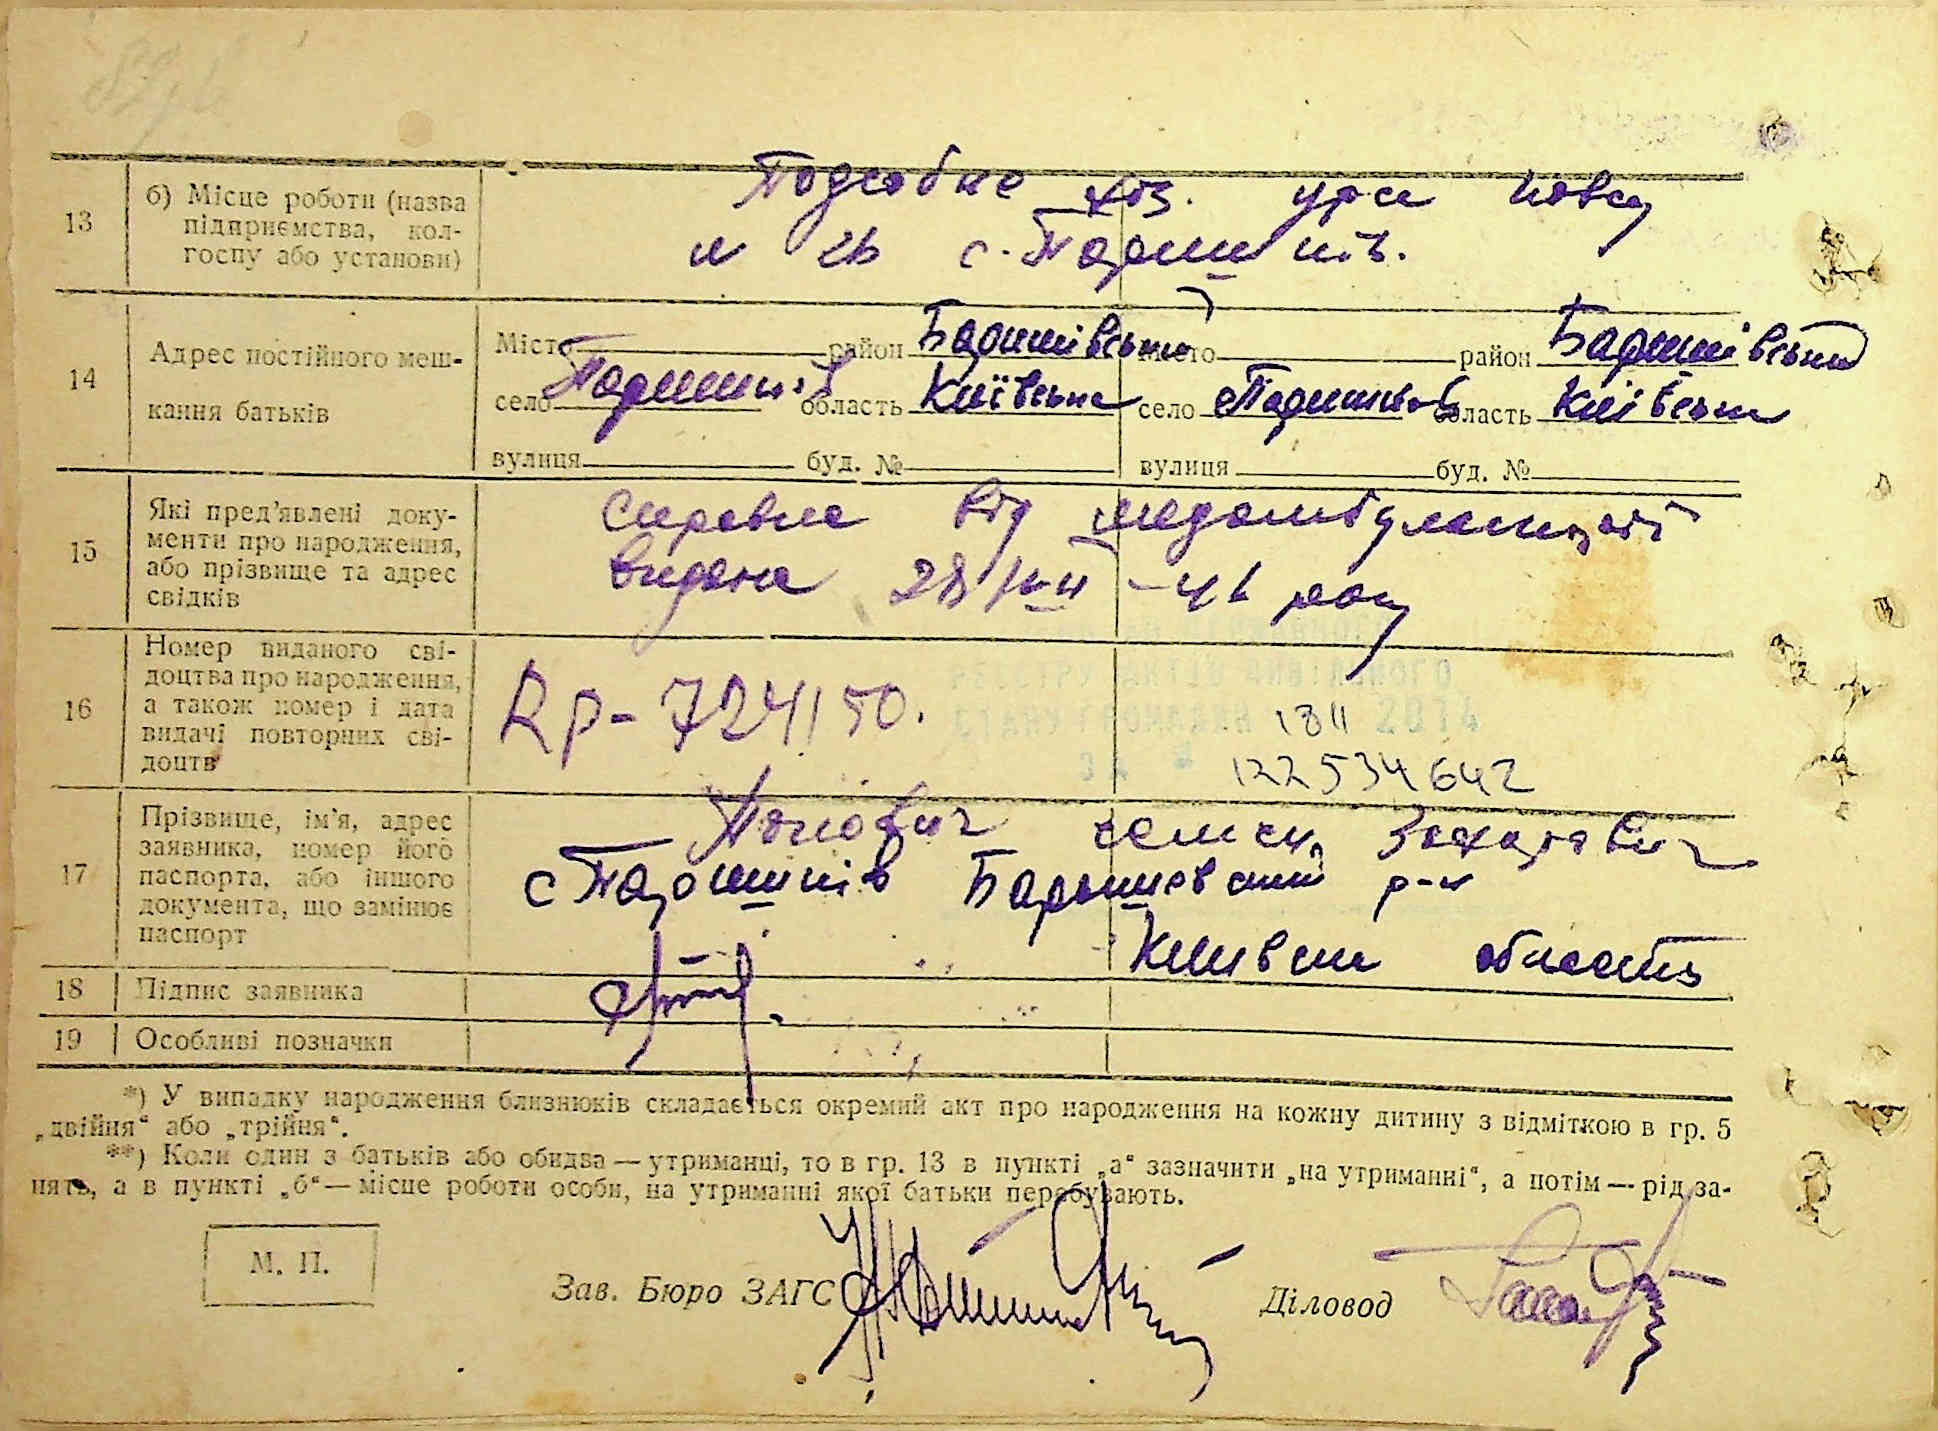 13 б) Місце роботи (назва підприємства, колгоспу або установи)
Подсобне хоз. урса
с. Паришків.
14 Адрес постійного мешкання батьків
Місто район Баришівський місто район Баришівський
село Паришків область Київська село Паришків область Київська
вулиця буд. № вулиця буд. №
15 Які пред'явлені документи про народження, або прізвище та адрес свідків
Справка від медамбулаторії
видана 28/VII-46 року
16 Номер виданого свідоцтва про народження, а також номер і дата видачі повторних свідоцтв
724150.
РЕЄСТРУ АКТІВ ЦИВІЛЬНОГО
СТАНУ ГРОМАДЯН 1811 2014
ЗА № 122534642
17 Прізвище, ім'я, адрес заявника, номер його паспорта, або іншого документа, що замінює паспорт
Попович Захарович
с Паришків Баришевский р-н
області
18 Підпис заявника
19 Особливі позначки
*) У випадку народження близнюків складається окремий акт про народження на кожну дитину з відміткою в гр. 5
„двійня“ або „трійня“.
**) Коли один з батьків або обидва — утриманці, то в гр. 13 в пункті „а“ зазначити „на утриманні“, а потім — рід за-
нять, а в пункті „б“ — місце роботи особи, на утриманні якої батьки перебувають.
М. П.
Зав. Бюро ЗАГС Діловод